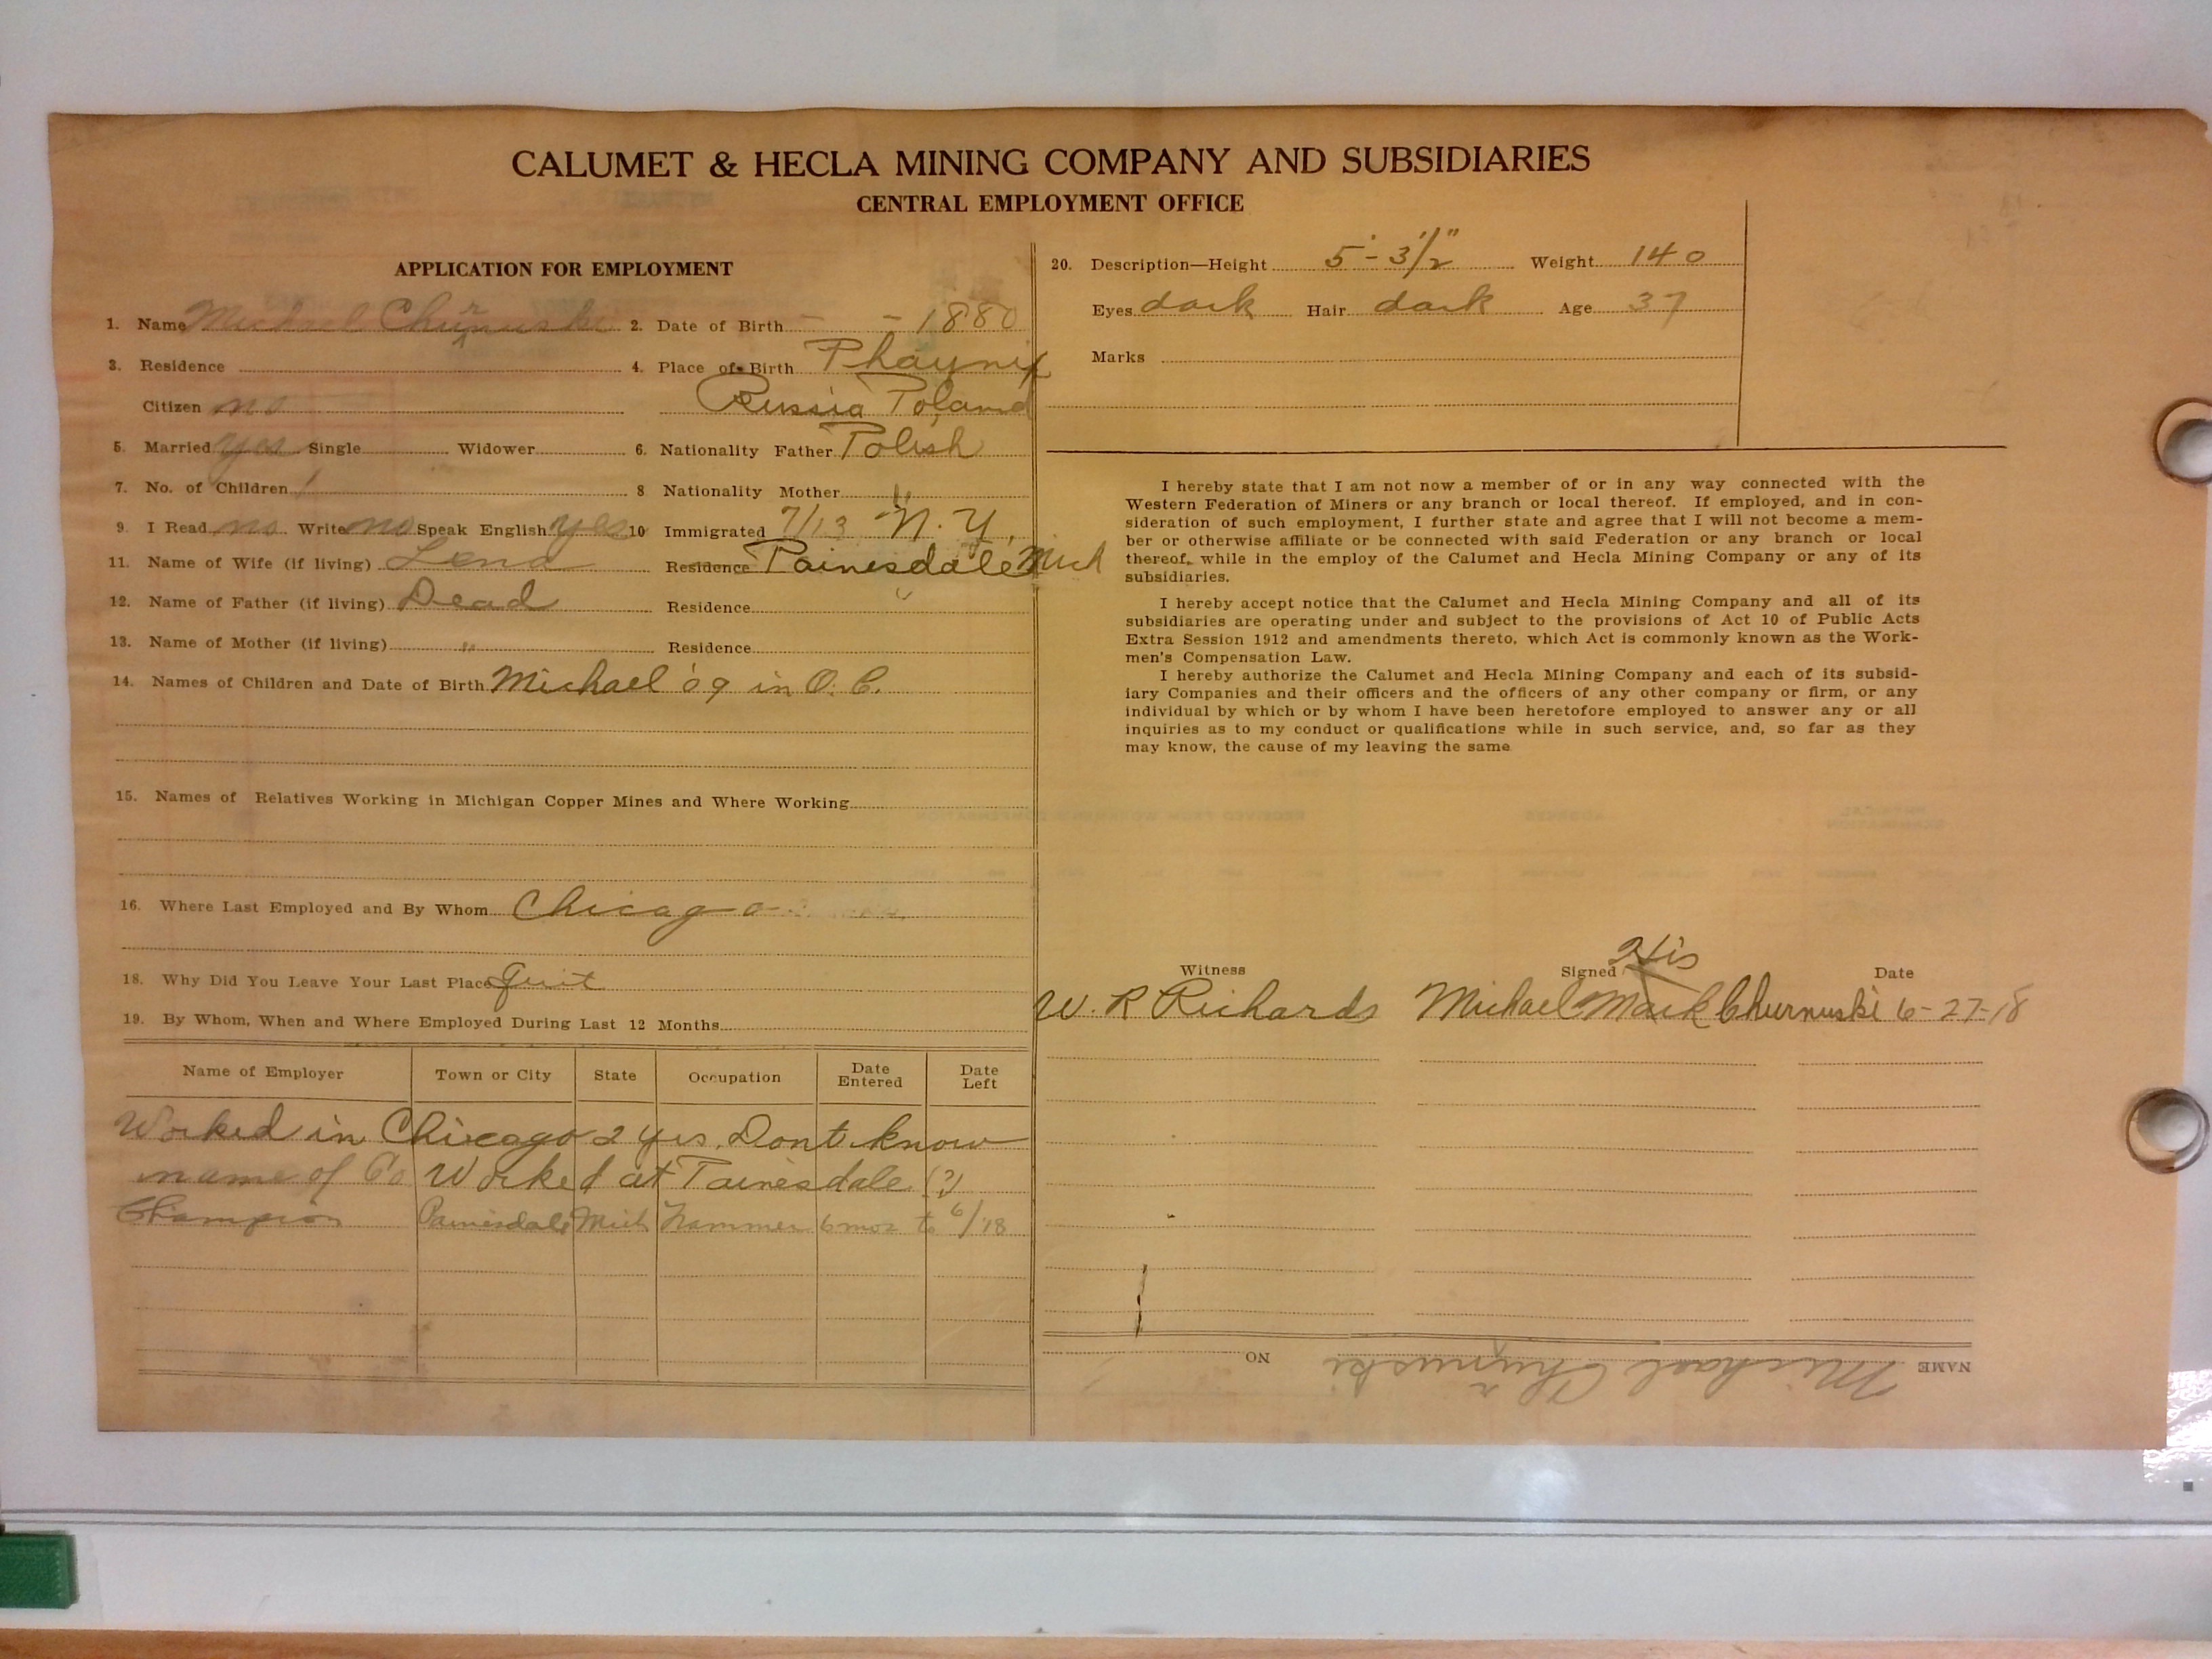 CALUMET & HECLA MINING COMPANY AND SUBSIDIARIES
CENTRAL EMPLOYMENT OFFICE
APPLICATION FOR EMPLOYMENT
1. Name Michael Churnuski 2. Date of Birth - - 1880
3. Residence 4. Place of Birth Phaynix
Citizen no Russia Poland
5. Married yes Single Widower 6. Nationality Father Polish
7. No. of Children 1 8 Nationality Mother "
9. I Read no Write no Speak English yes 10 Immigrated 7/13 - N. Y.
11. Name of Wife (if living) Lena Residence Painesdale Mich
12. Name of Father (if living) Dead Residence
13. Name of Mother (if living) " Residence
14. Names of Children and Date of Birth Michael '09 in O. C.
15. Names of Relatives Working in Michigan Copper Mines and Where Working
16. Where Last Employed and By Whom Chicago
18. Why Did You Leave Your Last Place Quit
19. By Whom, When and Where Employed During Last 12 Months
Name of Employer Town or City State Occupation Date Entered Date Left
Worked in Chicago 2 yrs. Dont know
name of Co Worked at Painesdale (?)
Champion Painesdale Mich Trammer 6 mos to 6/18
20. Description—Height 5'-3 1/2" Weight 140
Eyes dark Hair dark Age 37
Marks
I hereby state that I am not now a member of or in any way connected with the
Western Federation of Miners or any branch or local thereof. If employed, and in con-
sideration of such employment, I further state and agree that I will not become a mem-
ber or otherwise affiliate or be connected with said Federation or any branch or local
thereof, while in the employ of the Calumet and Hecla Mining Company or any of its
subsidiaries.
I hereby accept notice that the Calumet and Hecla Mining Company and all of its
subsidiaries are operating under and subject to the provisions of Act 10 of Public Acts
Extra Session 1912 and amendments thereto, which Act is commonly known as the Work-
men's Compensation Law.
I hereby authorize the Calumet and Hecla Mining Company and each of its subsid-
iary Companies and their officers and the officers of any other company or firm, or any
individual by which or by whom I have been heretofore employed to answer any or all
inquiries as to my conduct or qualifications while in such service, and, so far as they
may know, the cause of my leaving the same
Witness Signed His Date
W. R Richards Michael X Mark Churnuski 6-27-18
NAME Michael Churnuski NO